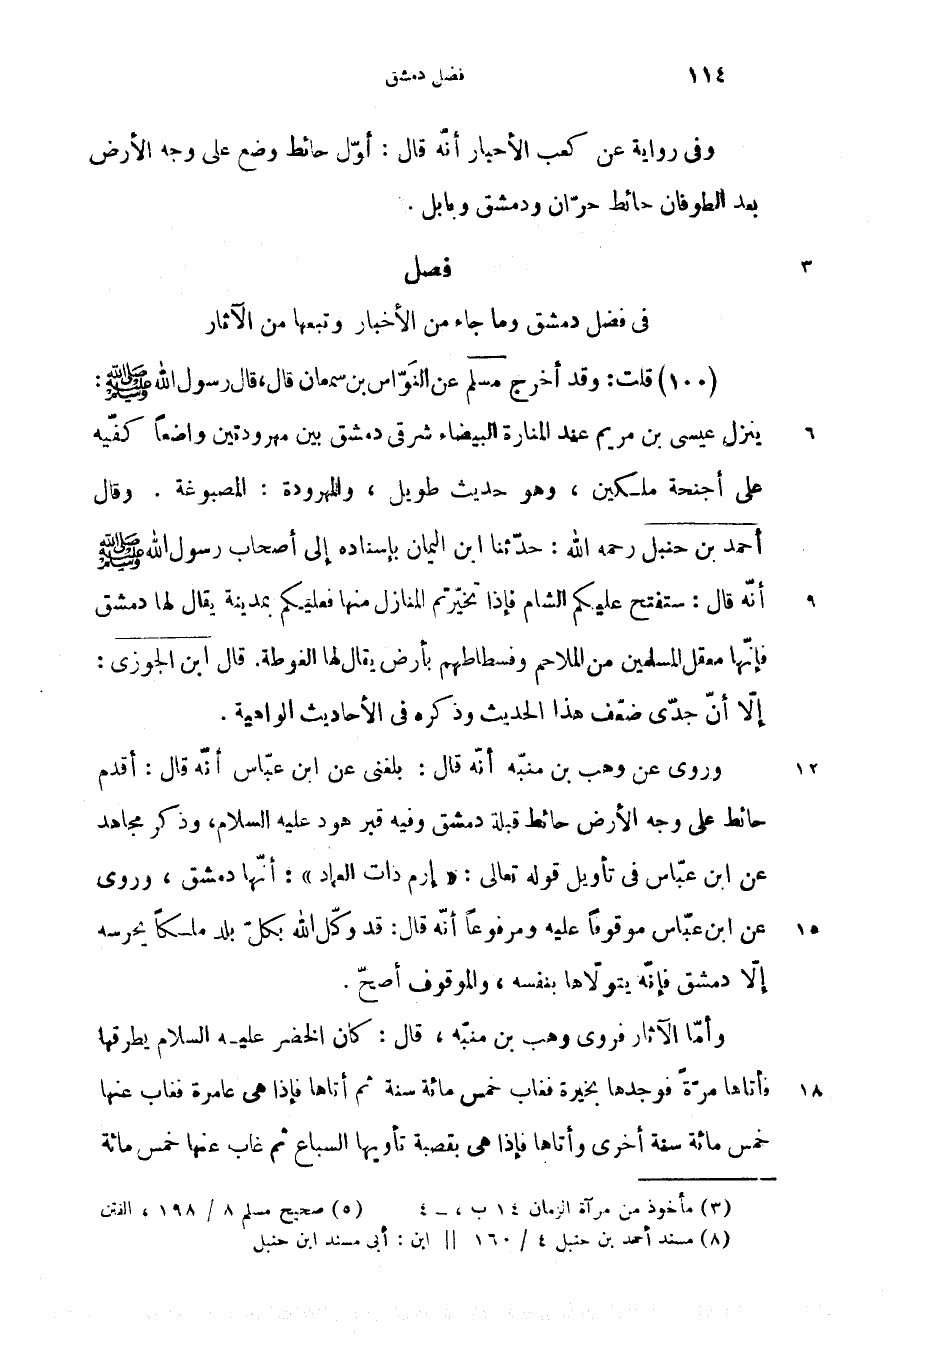 ١١٤ فضل دمشق
وفى رواية عن كعب الأحبار أنّه قال : أوّل حائط وضع على وجه الأرض
بعد الطوفان حائط حرّان ودمشق وبابل .
٣ فصل
فى فضل دمشق وما جاء من الأخبار وتبعها من الآثار
(١٠٠) قلت: وقد أخرج مسلم عن النوّاس بن سمعان قال، قال رسول الله ﷺ :
٦ ينزل عيسى بن مريم عند المنارة البيضاء شرقى دمشق بين مهرودتين واضعاً كفّيه
على أجنحة ملكين ، وهو حديث طويل ، والمهرودة : المصبوغة . وقال
أحمد بن حنبل رحمه الله : حدّثنا ابن اليمان بإسناده إلى أصحاب رسول الله ﷺ
٩ أنّه قال : ستفتح عليكم الشام فإذا تخيّرتم المنازل منها فعليكم بمدينة يقال لها دمشق
فإنّها معقل المسلمين من الملاحم وفسطاطهم بأرض يقال لها الغوطة. قال ابن الجوزى :
إلّا أنّ جدّى ضعّف هذا الحديث وذكره فى الأحاديث الواهية .
١٢ وروى عن وهب بن منبّه أنّه قال : بلغنى عن ابن عبّاس أنّه قال : أقدم
حائط على وجه الأرض حائط قبلة دمشق وفيه قبر هود عليه السلام، وذكر مجاهد
عن ابن عبّاس فى تأويل قوله تعالى : « إرم ذات العماد » : أنّها دمشق ، وروى
١٥ عن ابن عبّاس موقوفاً عليه ومرفوعاً أنّه قال: قد وكّل الله بكلّ بلد ملكاً يحرسه
إلّا دمشق فإنّه يتولّاها بنفسه ، والموقوف أصحّ .
وأمّا الآثار فروى وهب بن منبّه ، قال : كان الخضر عليه السلام يطرقها
١٨ فأتاها مرّةً فوجدها بخيرة فغاب خمس مائة سنة ثم أتاها فإذا هى عامرة فغاب عنها
خمس مائة سنة أخرى وأتاها فإذا هى بقصبة تأويها السباع ثم غاب عنها خمس مائة
(٣) مأخوذ من مرآة الزمان ١٤ ب ، ـ ٤ (٥) صحيح مسلم ٨ / ١٩٨ ، الفتن
(٨) مسند أحمد بن حنبل ٤ / ١٦٠ || ابن : أبى مسند ابن حنبل